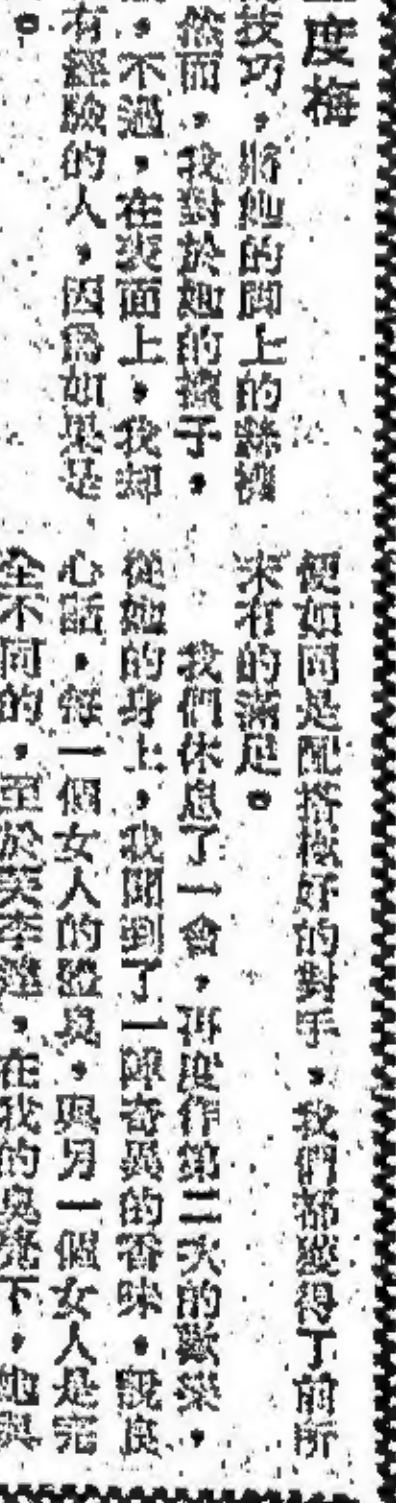 度梅
技巧，將她的脚上的絲襪
然而，我對於她的襪子，
不過，在表面上，我却
有經驗的人，因爲如果是
。
便如同是配搭極好的對手，我們都獲得了前所
未有的滿足。
我們休息了一會，再度作第二次的歡樂，
從她的身上，我聞到了一陣奇異的香味，說良
心話，每一個女人的體臭，與另一個女人是完
全不同的，至於芙李達，在我的臭覺下，她與